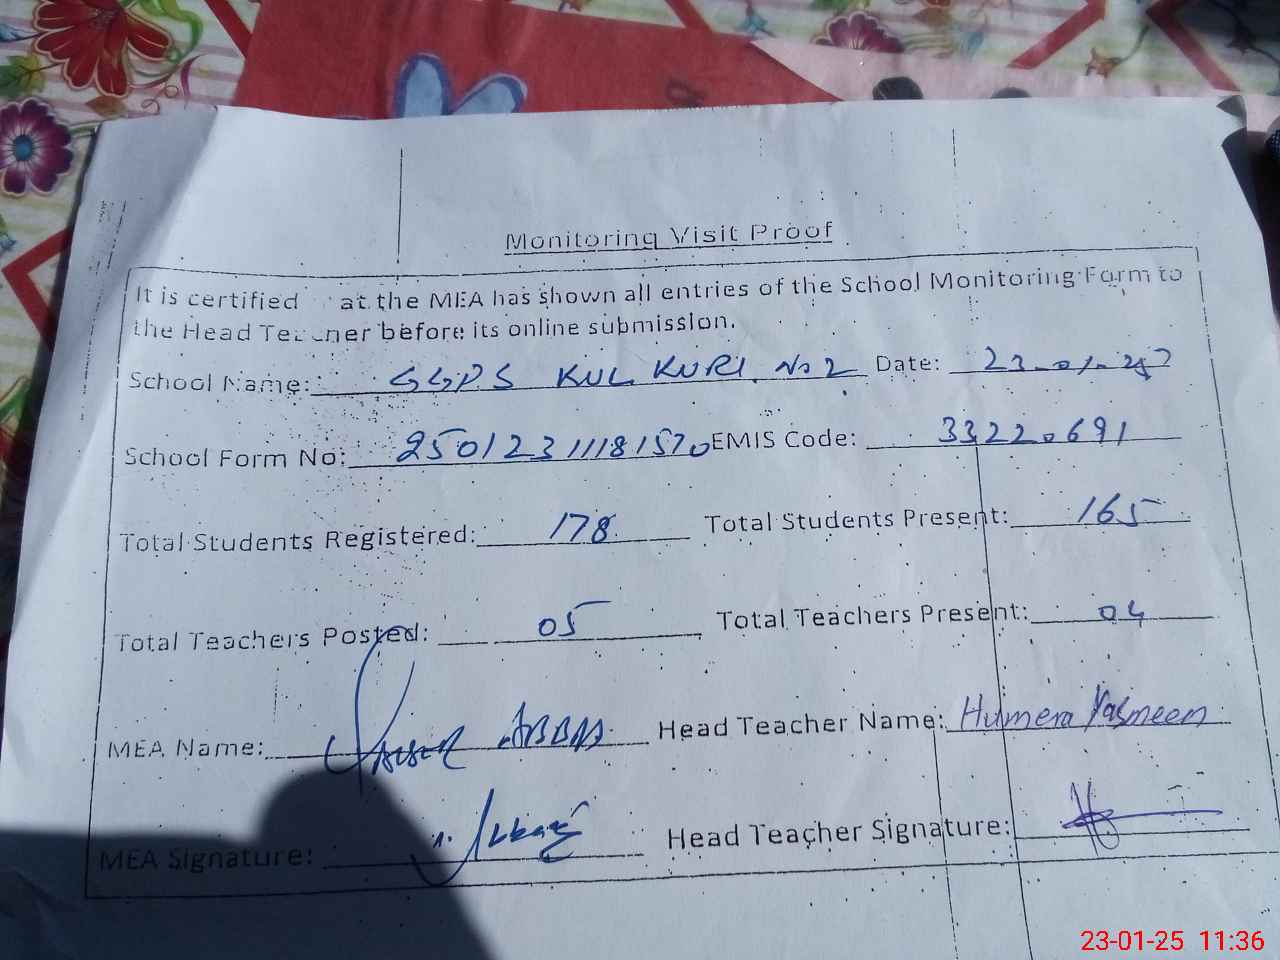 Monitoring Visit Proof
It is certified at the MEA has shown all entries of the School Monitoring Form to
the Head Teacher before its online submission.
School Name: GGPS KUL KURI No 2 Date: 23-01-25
School Form No: 250123111181570 EMIS Code: 33220691
Total Students Registered: 178 Total Students Present: 165
Total Teachers Posted: 05 Total Teachers Present: 04
MEA Name: ABBAS Head Teacher Name: Humera Yasmeen
MEA Signature: Head Teacher Signature:
23-01-25 11:36